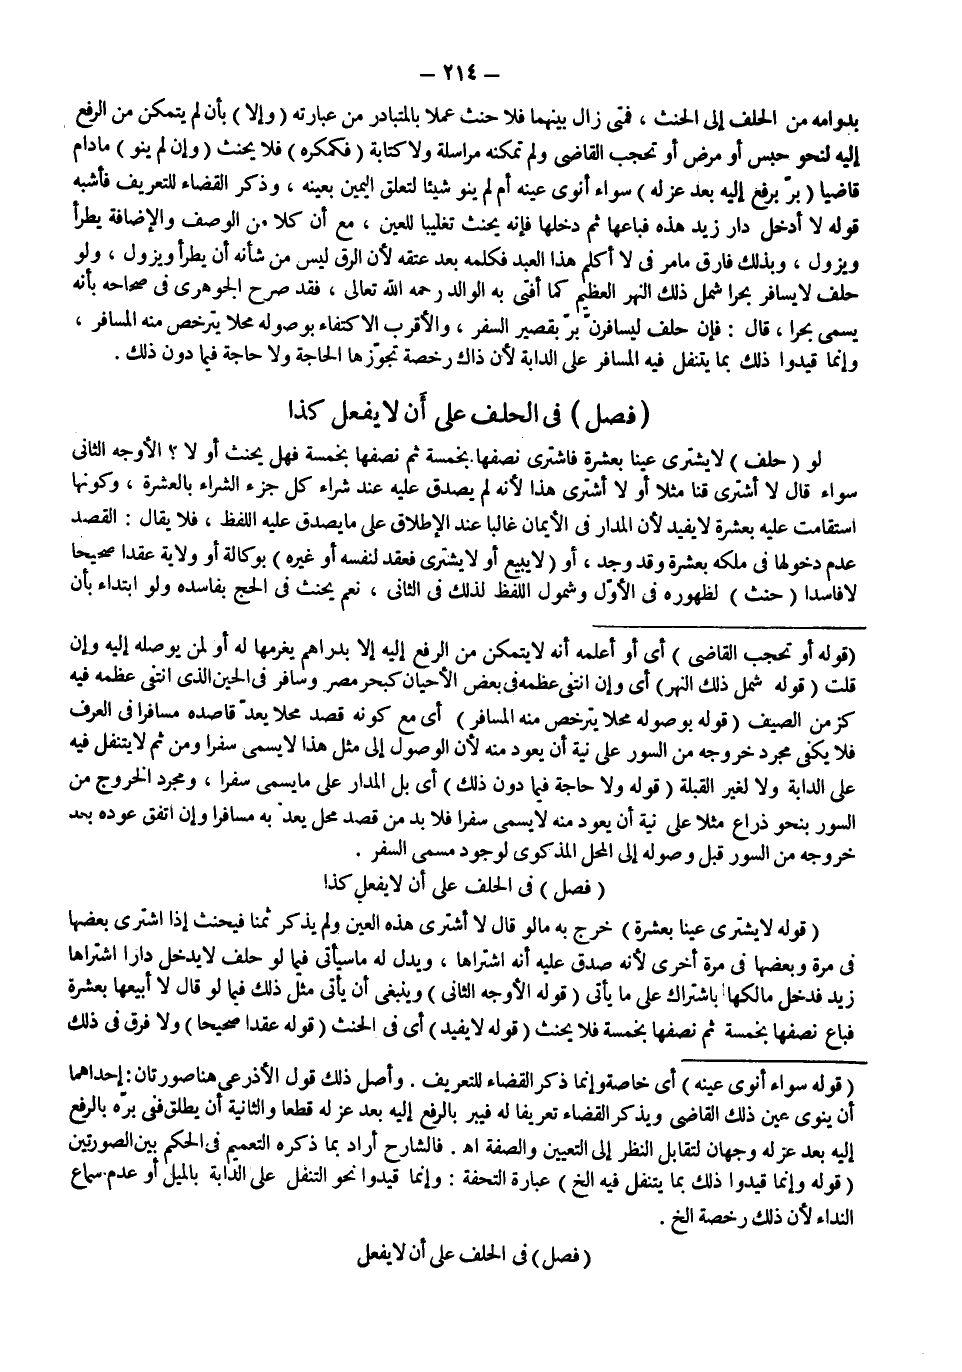 – ٢١٤ –
بدوامه من الحلف إلى الحنث ، فمتى زال بينهما فلا حنث عملا بالمتبادر من عبارته ( وإلا ) بأن لم يتمكن من الرفع
إليه لنحو حبس أو مرض أو تحجب القاضى ولم تمكنه مراسلة ولا كتابة ( فكمكره ) فلا يحنث ( وإن لم ينو ) مادام
قاضيا ( برّ برفع إليه بعد عزله ) سواء أنوى عينه أم لم ينو شيئا لتعلق اليمين بعينه ، وذكر القضاء للتعريف فأشبه
قوله لا أدخل دار زيد هذه فباعها ثم دخلها فإنه يحنث تغليبا للعين ، مع أن كلا من الوصف والإضافة يطرأ
ويزول ، وبذلك فارق مامر فى لا أكلم هذا العبد فكلمه بعد عتقه لأن الرق ليس من شأنه أن يطرأ ويزول ، ولو
حلف لايسافر بحرا شمل ذلك النهر العظيم كما أفتى به الوالد رحمه الله تعالى ، فقد صرح الجوهرى فى صحاحه بأنه
يسمى بحرا ، قال : فإن حلف ليسافرنّ برّ بقصير السفر ، والأقرب الاكتفاء بوصوله محلا يترخص منه المسافر ،
وإنما قيدوا ذلك بما يتنفل فيه المسافر على الدابة لأن ذاك رخصة تجوّزها الحاجة ولا حاجة فيما دون ذلك .
( فصل ) فى الحلف على أن لا يفعل كذا
لو ( حلف ) لايشترى عينا بعشرة فاشترى نصفها بخمسة ثم نصفها بخمسة فهل يحنث أو لا ؟ الأوجه الثانى
سواء قال لا أشترى قنا مثلا أو لا أشترى هذا لأنه لم يصدق عليه عند شراء كل جزء الشراء بالعشرة ، وكونها
استقامت عليه بعشرة لايفيد لأن المدار فى الأيمان غالبا عند الإطلاق على مايصدق عليه اللفظ ، فلا يقال : القصد
عدم دخولها فى ملكه بعشرة وقد وجد ، أو ( لايبيع أو لايشترى فعقد لنفسه أو غيره ) بوكالة أو ولاية عقدا صحيحا
لافاسدا ( حنث ) لظهوره فى الأوّل وشمول اللفظ لذلك فى الثانى ، نعم يحنث فى الحج بفاسده ولو ابتداء بأن
(قوله أو تحجب القاضى ) أى أو أعلمه أنه لايتمكن من الرفع إليه إلا بدراهم يغرمها له أو لمن يوصله إليه وإن
قلت ( قوله شمل ذلك النهر) أى وإن انتفى عظمه فى بعض الأحيان كبحر مصر وسافر فى الحين الذى انتفى عظمه فيه
كزمن الصيف ( قوله بوصوله محلا يترخص منه المسافر ) أى مع كونه قصد محلا يعدّ قاصده مسافرا فى العرف
فلا يكفى مجرد خروجه من السور على نية أن يعود منه لأن الوصول إلى مثل هذا لايسمى سفرا ومن ثم لايتنفل فيه
على الدابة ولا لغير القبلة ( قوله ولا حاجة فيما دون ذلك ) أى بل المدار على مايسمى سفرا ، ومجرد الخروج من
السور بنحو ذراع مثلا على نية أن يعود منه لايسمى سفرا فلا بد من قصد محل يعدّ به مسافرا وإن اتفق عوده بعد
خروجه من السور قبل وصوله إلى المحل المذكوى لوجود مسمى السفر .
( فصل ) فى الحلف على أن لايفعل كذا
( قوله لايشترى عينا بعشرة ) خرج به مالو قال لا أشترى هذه العين ولم يذكر ثمنا فيحنث إذا اشترى بعضها
فى مرة وبعضها فى مرة أخرى لأنه صدق عليه أنه اشتراها ، ويدل له ماسيأتى فيما لو حلف لايدخل دارا اشتراها
زيد فدخل مالكها باشتراك على ما يأتى ( قوله الأوجه الثانى ) وينبغى أن يأتى مثل ذلك فيما لو قال لا أبيعها بعشرة
فباع نصفها بخمسة ثم نصفها بخمسة فلا يحنث ( قوله لايفيد ) أى فى الحنث ( قوله عقدا صحيحا ) ولا فرق فى ذلك
( قوله سواء أنوى عينه ) أى خاصة وإنما ذكر القضاء للتعريف . وأصل ذلك قول الأذرعى هنا صورتان : إحداهما
أن ينوى عين ذلك القاضى ويذكر القضاء تعريفا له فيبر بالرفع إليه بعد عزله قطعا والثانية أن يطلق ففى برّه بالرفع
إليه بعد عزله وجهان لتقابل النظر إلى التعيين والصفة اهـ . فالشارح أراد بما ذكره التعميم فى الحكم بين الصورتين
( قوله وإنما قيدوا ذلك بما يتنفل فيه الخ ) عبارة التحفة : وإنما قيدوا نحو التنفل على الدابة بالميل أو عدم سماع
النداء لأن ذلك رخصة الخ .
( فصل ) فى الحلف على أن لايفعل